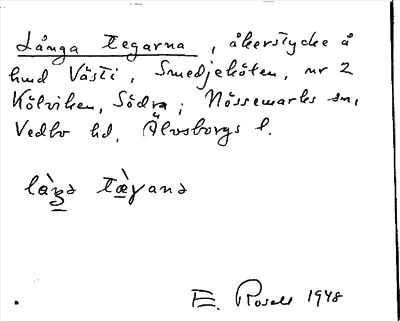 Långa tegarna, åkerstycke å
hmd Västi, Smedjeköten, nr 2
Kölviken, Södra; Nössemarks sn,
Vedbo hd, Älvsborgs l.
E. Rosell 1948